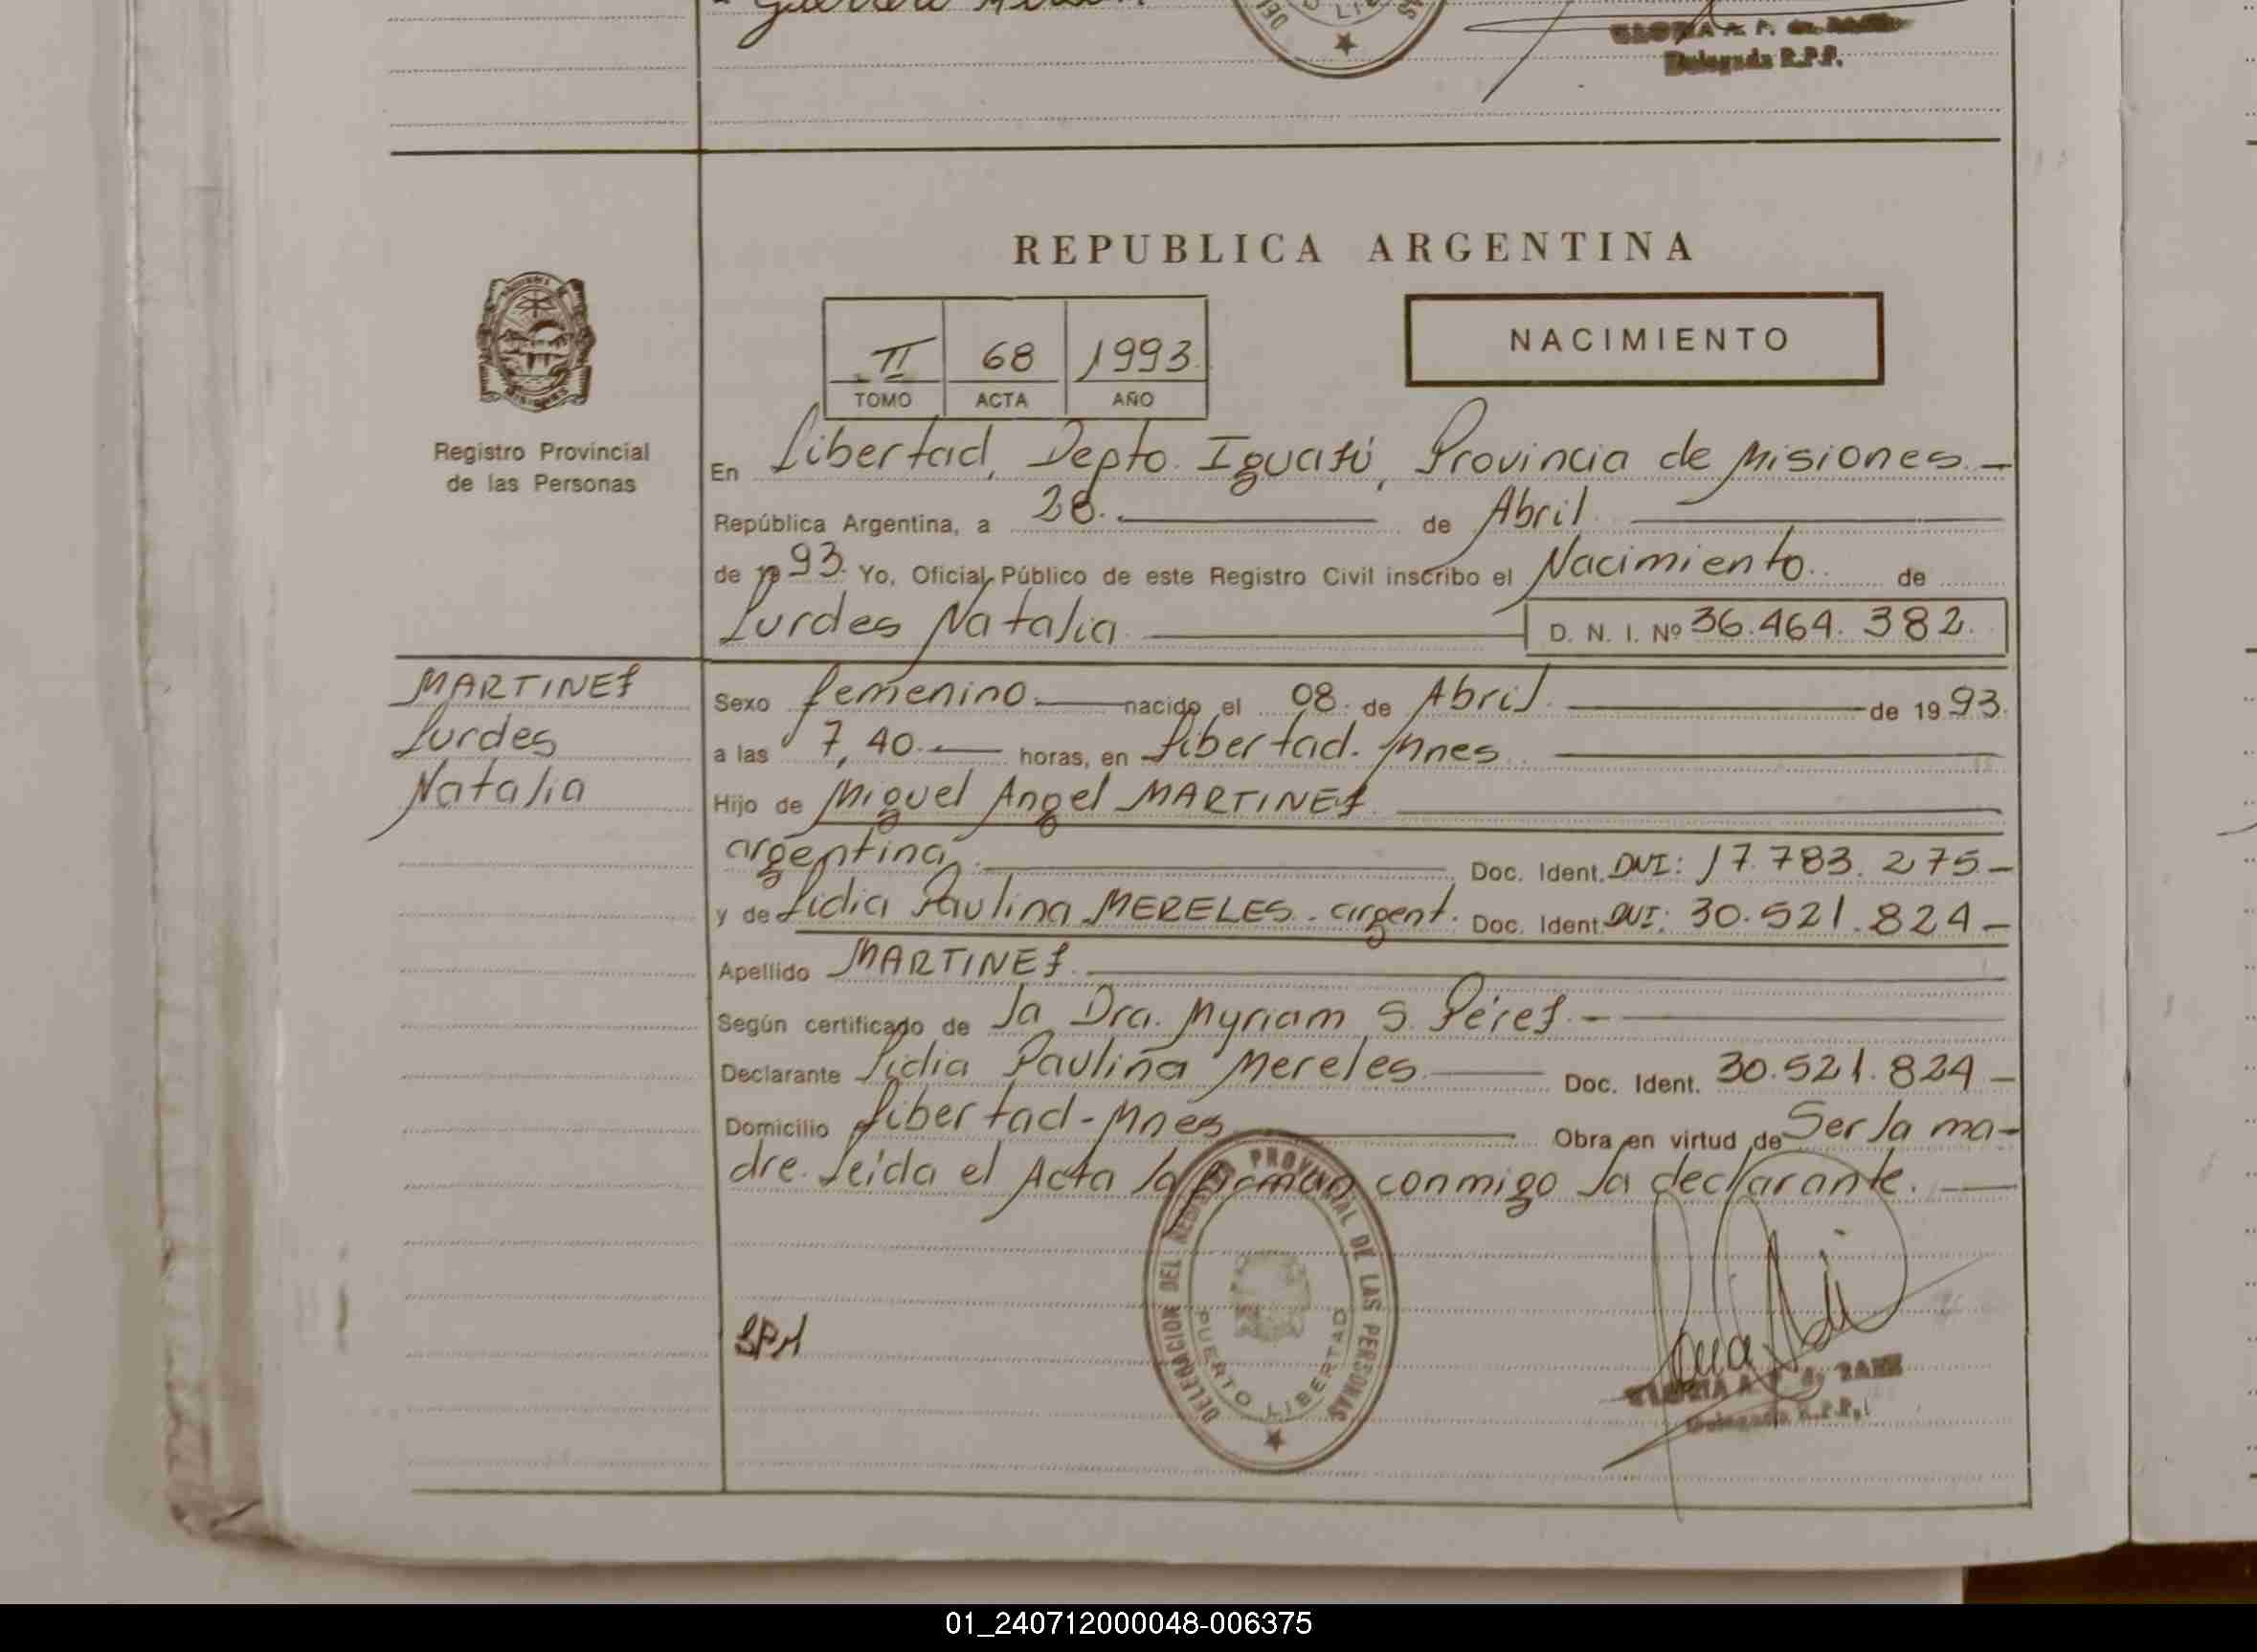 Delegada R.P.P.
REPUBLICA ARGENTINA
NACIMIENTO
II 68 1993
TOMO ACTA AÑO
Registro Provincial
de las Personas
En Libertad, Depto. Iguasú, Provincia de Misiones.-
República Argentina, a 28. de Abril
de 1993. Yo, Oficial Público de este Registro Civil inscribo el Nacimiento de
Lurdes Natalia D. N. I. Nº 36.464.382.
MARTINEZ
Lurdes
Natalia
Sexo femenino nacido el 08. de Abril. de 1993.
a las 7,40. horas, en Libertad. Mnes
Hijo de Miguel Angel MARTINEZ
argentina. Doc. Ident. DNI: 17.783.275.-
y de Lidia Paulina MERELES. argent. Doc. Ident. DNI: 30.521.824-
Apellido MARTINEZ.
Según certificado de la Dra. Myriam S. Pérez.-
Declarante Lidia Paulina Mereles Doc. Ident. 30.521.824-
Domicilio Libertad-Mnes Obra en virtud de Ser la ma-
dre. Leída el Acta la firman conmigo la declarante.
DELEGACION DEL REGISTRO PROVINCIAL DE LAS PERSONAS
PUERTO LIBERTAD
Delegada R.P.P.
01_240712000048-006375